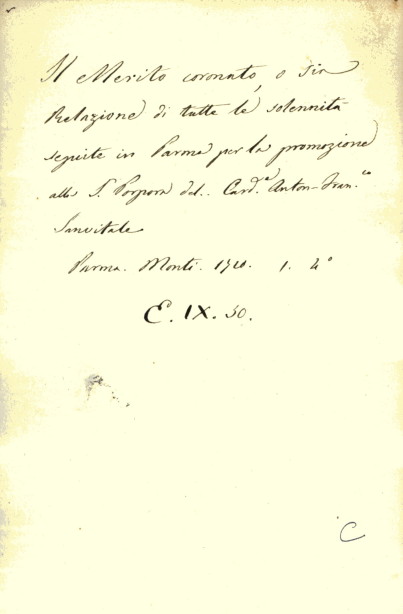 Il Merito coronato, o sia
Relazione di tutte le solennità
seguite in Parma per la promozione
alla S. Porpora del. Card.e Anton-Fran.co
Sanvitale
Parma. Monti. 1710. 1. 4°
E. IX. 50.
C